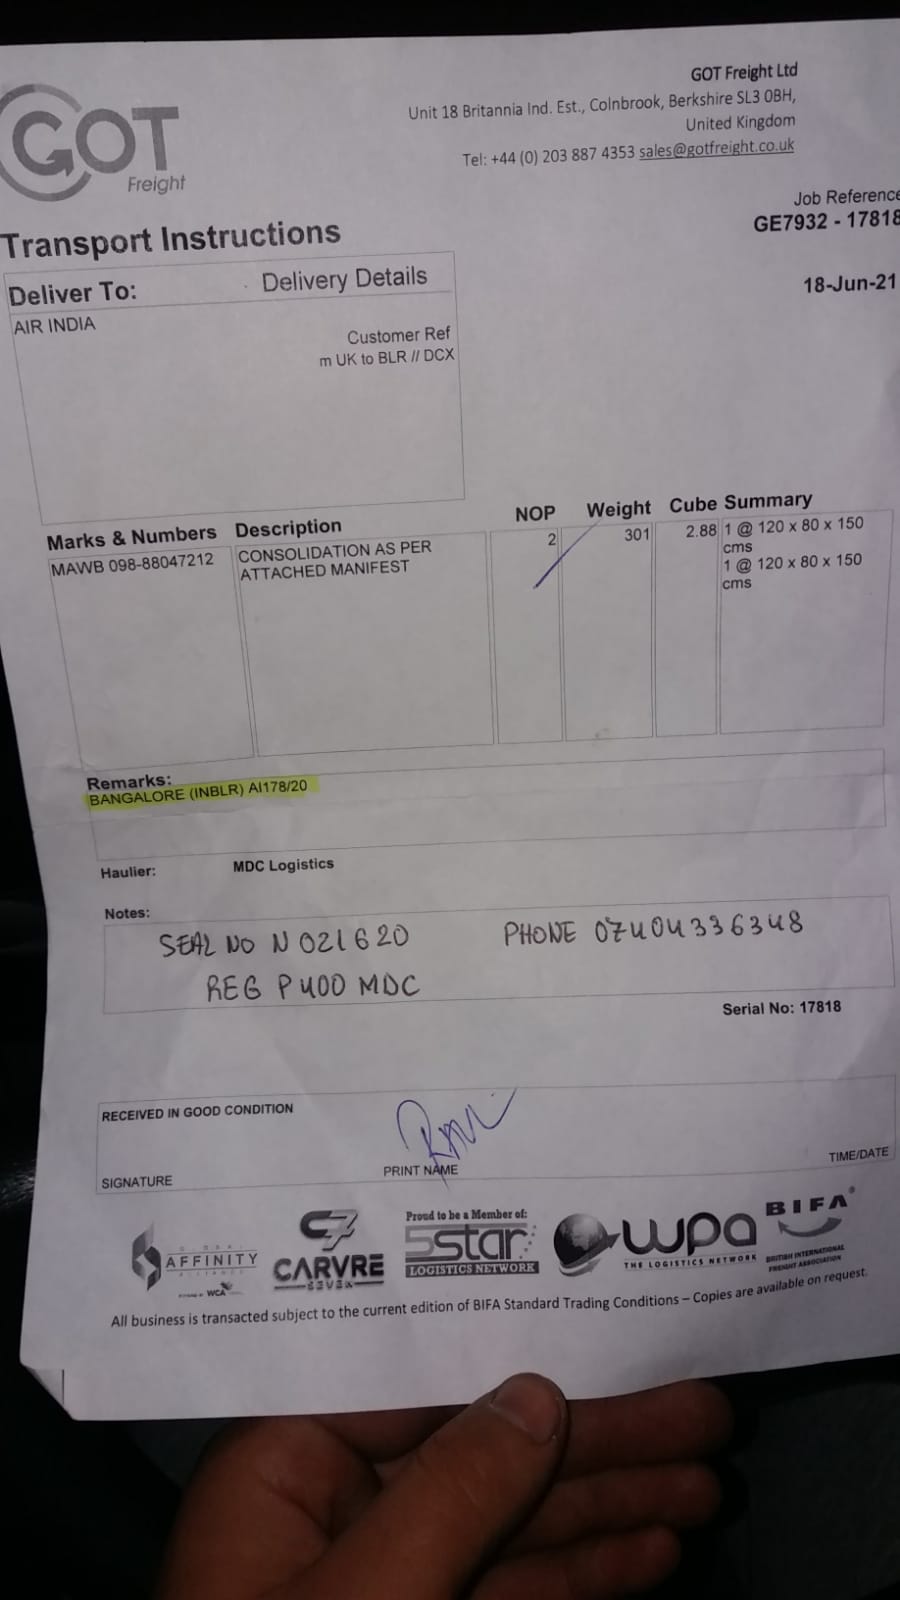 GOT
Freight
GOT Freight Ltd
Unit 18 Britannia Ind. Est., Colnbrook, Berkshire SL3 0BH,
United Kingdom
Tel: +44 (0) 203 887 4353 sales@gotfreight.co.uk
Job Reference
GE7932 - 17818
Transport Instructions
18-Jun-21
Deliver To: Delivery Details
AIR INDIA
Customer Ref
m UK to BLR // DCX
Marks & Numbers Description NOP Weight Cube Summary
MAWB 098-88047212 CONSOLIDATION AS PER 2 301 2.88 1 @ 120 x 80 x 150
ATTACHED MANIFEST cms
1 @ 120 x 80 x 150
cms
Remarks:
BANGALORE (INBLR) AI178/20
Haulier: MDC Logistics
Notes:
SEAL NO N 021620 PHONE 07404336348
REG P400 MDC
Serial No: 17818
RECEIVED IN GOOD CONDITION
SIGNATURE PRINT NAME TIME/DATE
AFFINITY
WCA
C7
CARVRE
SEVEN
Proud to be a Member of:
5star
LOGISTICS NETWORK
wpa
THE LOGISTICS NETWORK
BIFA
BRITISH INTERNATIONAL
FREIGHT ASSOCIATION
All business is transacted subject to the current edition of BIFA Standard Trading Conditions – Copies are available on request.